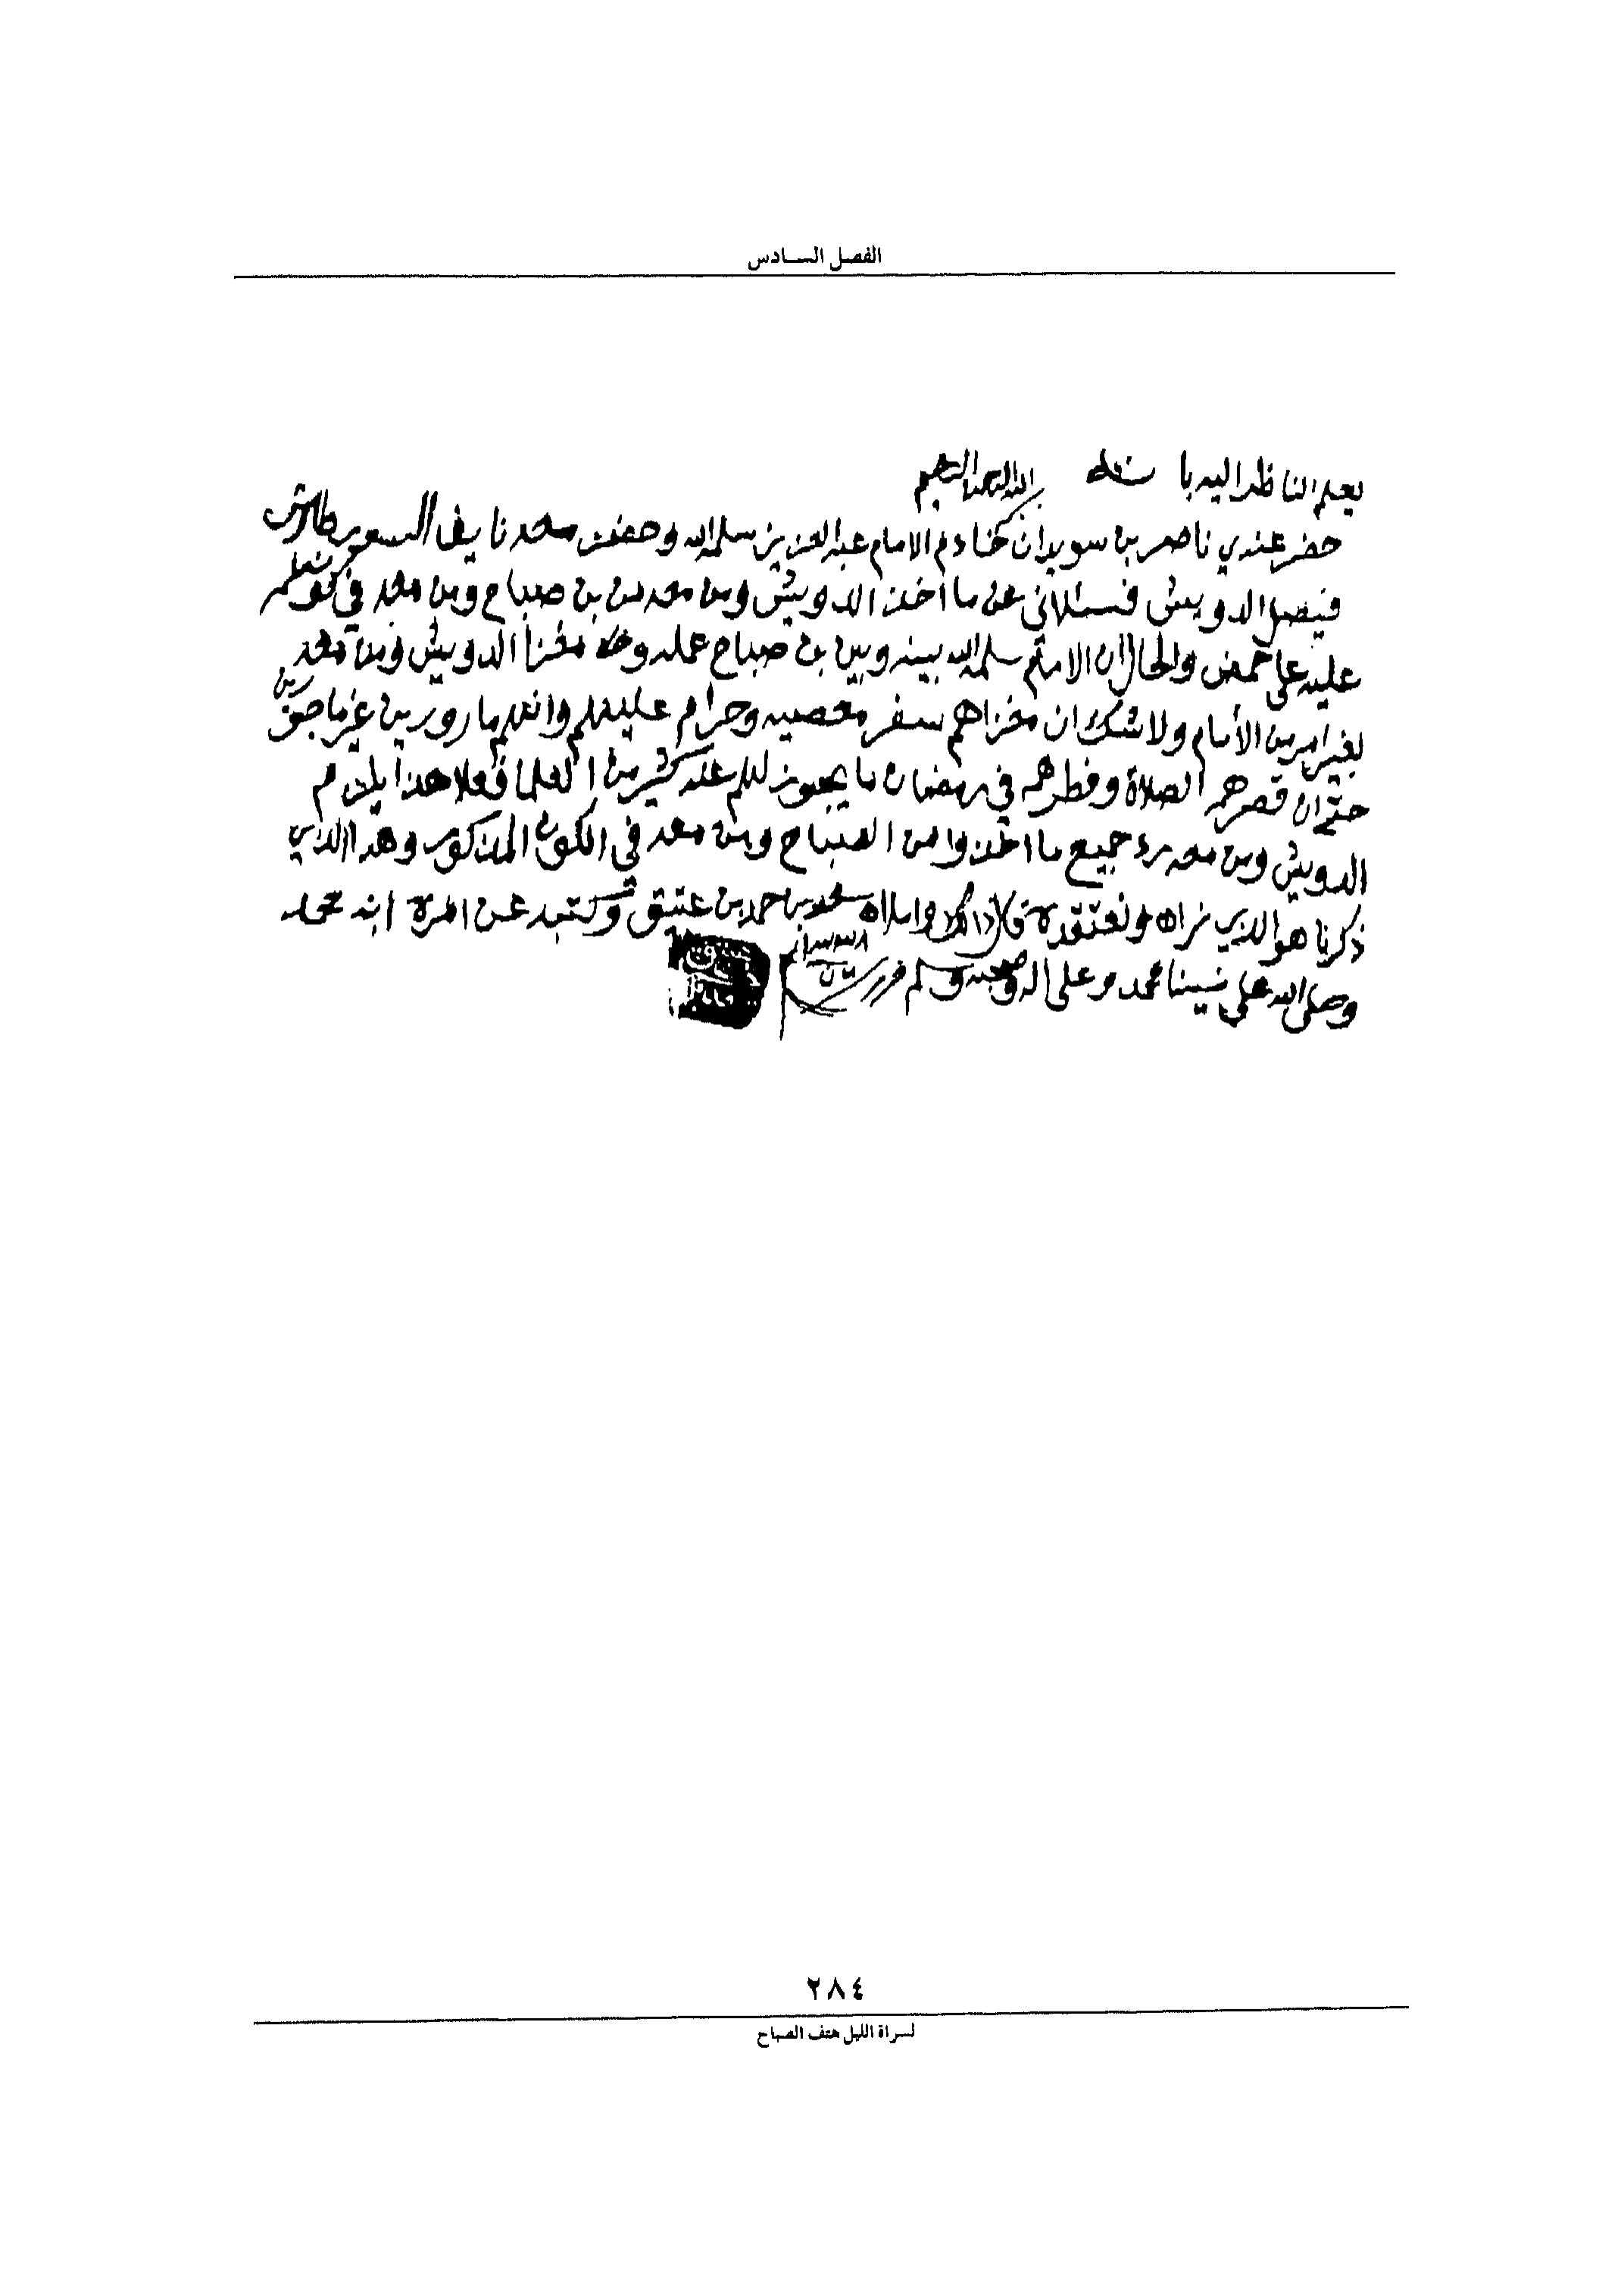 الفصل السادس
بسم الله الرحمن الرحيم
يعلم الناظر اليه با
حضر عندي ناصر بن سويدان خادم الامام عبد العزيز سلمه الله وحضر نايف السـ طارش
فيصل الدويش فسئلاني عن ما أخذ الدويش ومن معه من بن صباح ومن معه في
عليه على حمض والحال ان الامام سلمه الله بينه وبين بن صباح عهد مغزا الدويش ومن معه
بغير امر من الأمام ولا شك ان مغزاهم سفر معصيه وحرام عليهم وانهم مازورين غير ماجورين
حتى ان قصرهم الصلاة وفطرهم في رمضان ما يجوز لهم عند كثير من العلما فعلا هذا يلزم
الدويش ومن معه رد جميع ما اخذوا من الصباح ومن معه في الكون المذكور وهذا الذي
ذكرنا هو الذي نراه ونعتقده قال ذالك واملاه سعد بن حمد بن عتيق وكتبه عن امره ابنه محمد
وصلى الله على نبينا محمد وعلى اله وصحبه وسلم
٢٨٤
لسراة الليل هتف الصباح